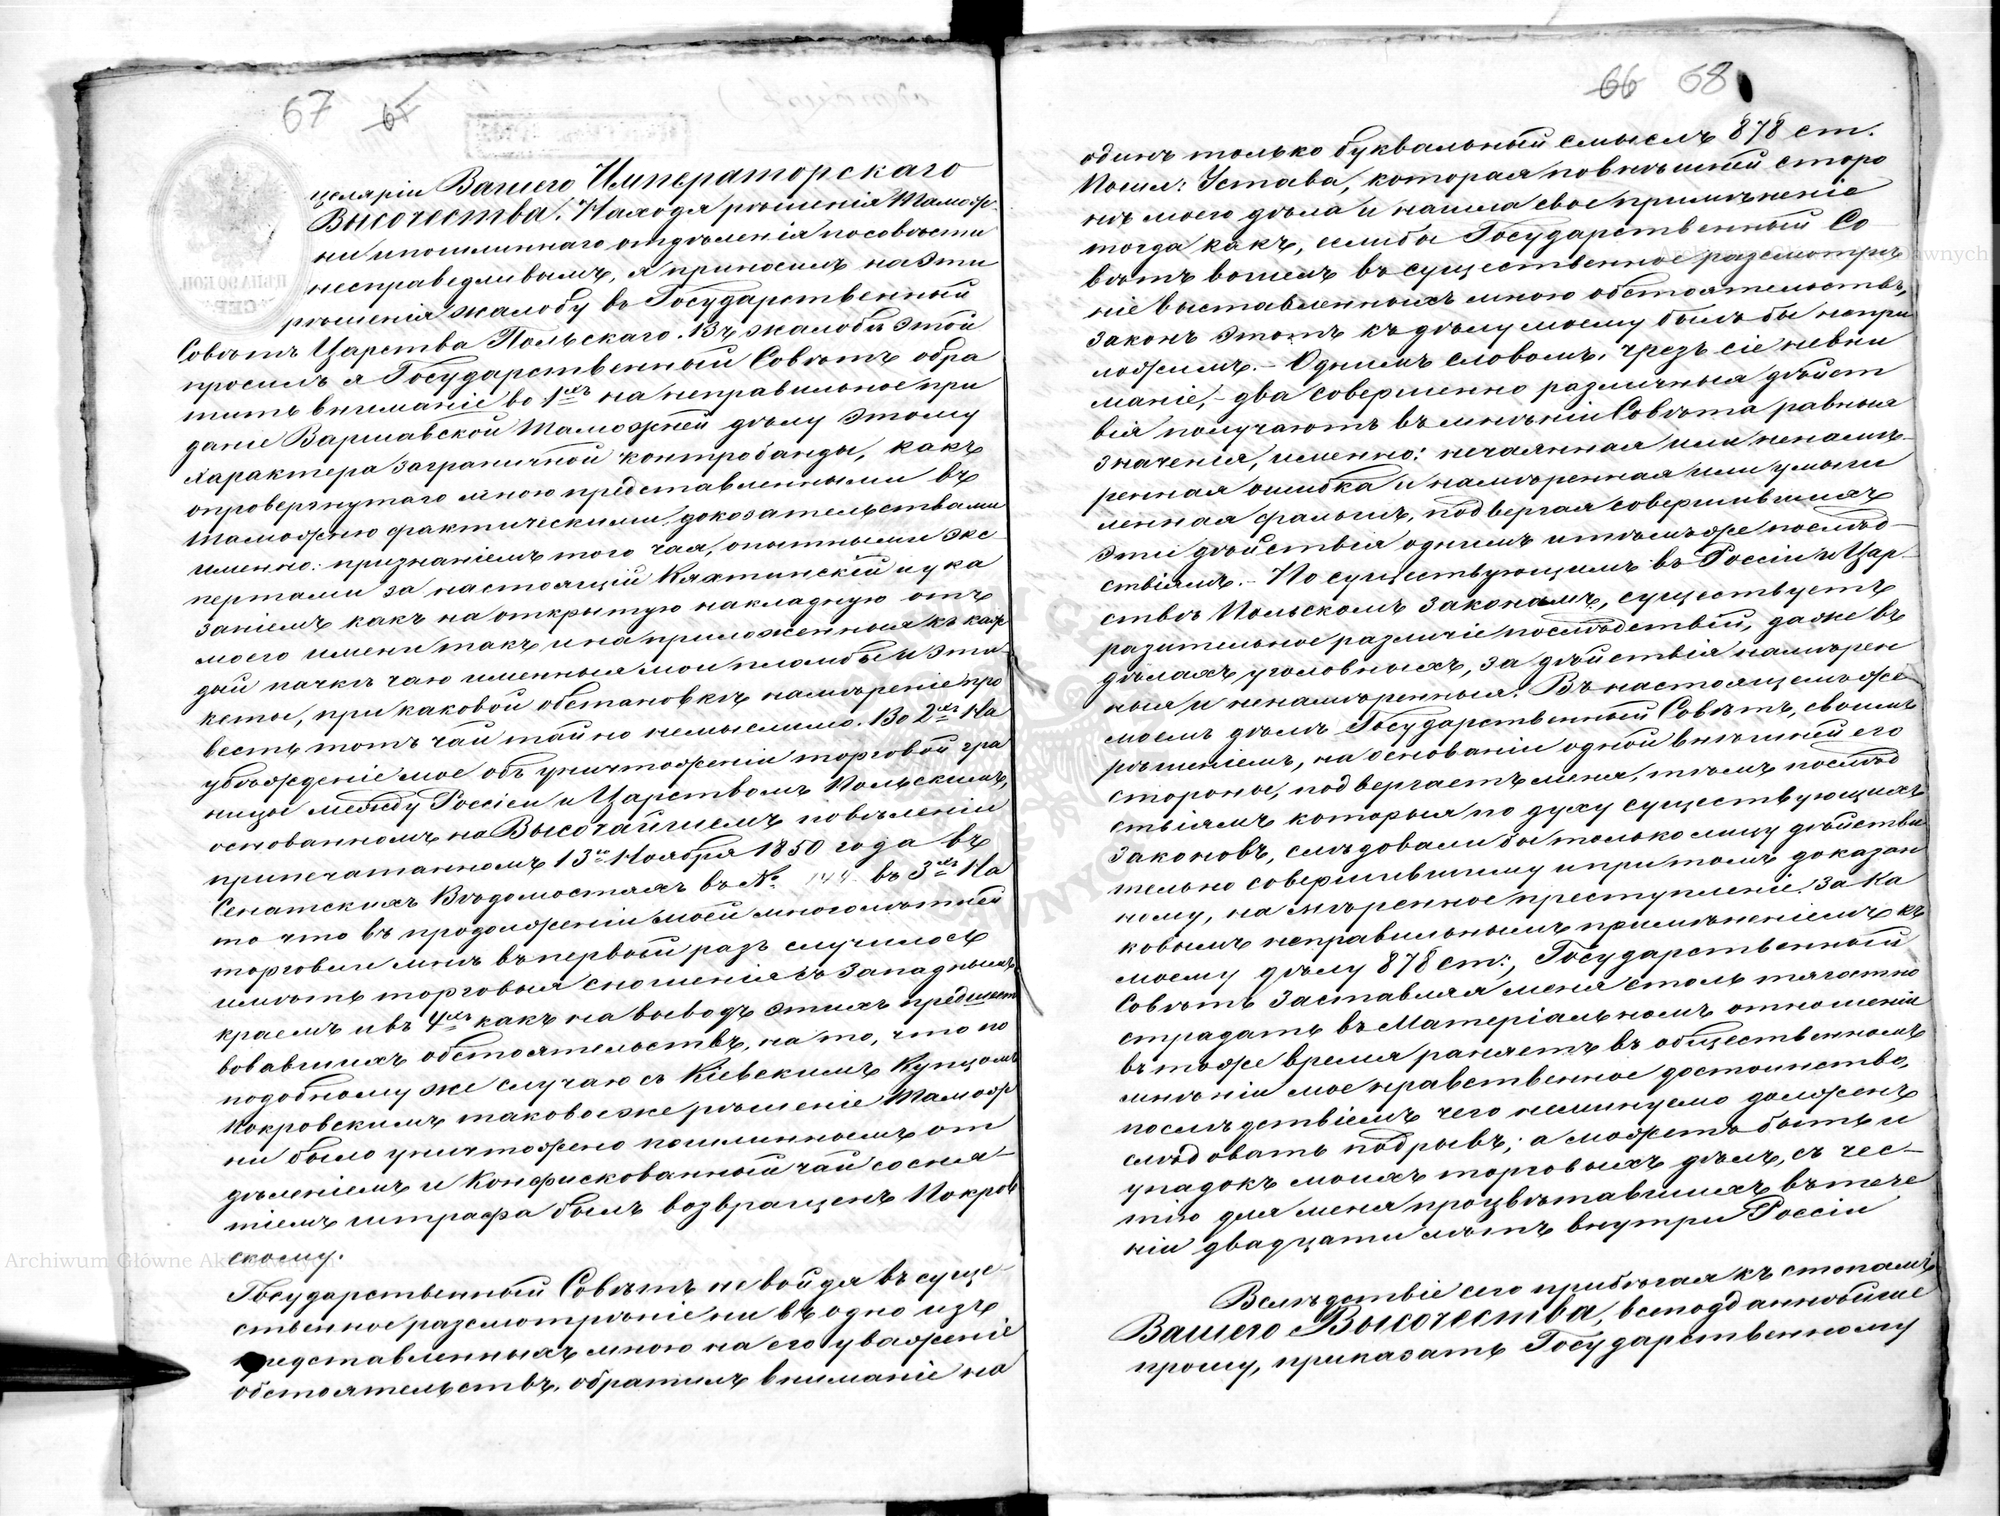 67 65
целяріи Вашего Императорскаго
Высочества. Находя рѣшенія Тамож
ни и пошлиннаго отдѣленія по совѣсти
несправедливымъ, я приносилъ на эти
рѣшенія жалобу въ Государственный
Совѣтъ Царства Польскаго. Въ жалобѣ этой
просилъ я Государственный Совѣтъ обра
тить вниманіе во 1хъ на неправильное при
даніе Варшавской Таможней дѣлу этому
характера заграничной контробанды, какъ
опровергнутаго мною представленными въ
Таможню фактическими доказательствами
именно: признаніемъ того чая, опытными экс
пертами за настоящій Кяхтинскій и ука
заніемъ какъ на открытую накладную отъ
моего имени такъ и на приложенныя къ каж
дой пачкѣ чаю именныя мои пломбы и эти
кеты, при каковой обстановкѣ намѣреніе про
весть тотъ чай тайно немыслимо. Во 2хъ На
убѣжденіе мое объ уничтоженіи торговой гра
ницы между Россіею и Царствомъ Польскимъ,
основанномъ на Высочайшемъ повѣленіи
припечатанномъ 13го Ноября 1850 года въ
Сенатскихъ Вѣдомостяхъ въ № 144 въ 3хъ На
то что въ продолженіи моей многолѣтней
торговли мнѣ въ первый разъ случилось
имѣть торговыя сношенія съ Западнымъ
краемъ и въ 4хъ какъ на выводъ этихъ предшест
вовавшихъ обстоятельствъ, на то, что по
подобному же случаю съ Кіевскимъ Купцомъ
Покровскимъ таковое же рѣшеніе Тамож
ни было уничтожено пошлиннымъ от
дѣленіемъ и Конфискованный чай со сня-
тіемъ штрафа былъ возвращенъ Покров
скому.
Государственный Совѣтъ не войдя въ суще-
ственное разсмотрѣніе ни въ одно изъ
представленныхъ мною на его уваженіе
обстоятельствъ, обратилъ вниманіе на
66 68
одинъ только буквальный смыслъ 878 ст.
Пошл: Устава, которая по внѣшней сторо
нѣ моего дѣла и нашла свое примѣненіе
тогда какъ, если бы Государственный Со
вѣтъ вошелъ въ существенное разсмотрѣ
ніе выставленныхъ мною обстоятельствъ,
законъ этотъ къ дѣлу моему былъ бы непри
ложимъ. - Однимъ словомъ, чрезъ сіе невни
маніе, - два совершенно различныя дѣйст
вія получаютъ въ мнѣніи Совѣта равныя
значенія, именно: нечаянная или ненамѣ-
ренная ошибка и намѣренная или умыш
ленная фальшь, подвергая совершившихъ
эти дѣйствія однимъ и тѣмъ же послѣд-
ствіямъ. - По существующимъ въ Россіи и Цар-
ствѣ Польскомъ законамъ, существуетъ
разительное различіе послѣдствій, даже въ
дѣлахъ уголовныхъ, за дѣйствія намѣрен
ныя и ненамѣренныя. Въ настоящемъ же
моемъ дѣлѣ Государственный Совѣтъ, своимъ
рѣшеніемъ, на основаніи одной внѣшней его
стороны, подвергаетъ меня, тѣмъ послѣд
ствіямъ которыя по духу существующихъ
законовъ, слѣдовали бы только лицу дѣйстви
тельно совершившему и притомъ доказан
ному, намѣренное преступленіе. За ка
ковымъ неправильнымъ примѣненіемъ къ
моему дѣлу 878 ст:, Государственный
Совѣтъ заставляя меня столь тягостно
страдать въ Матеріальномъ отношеніи
въ тоже время роняетъ въ общественномъ
мнѣніи мое нравственное достоинство,
послѣдствіемъ чего неминуемо долженъ
слѣдовать подрывъ; а можетъ быть и
упадокъ моихъ торговыхъ дѣлъ, съ чес-
тію для меня процвѣтавшихъ въ тече
ніи двадцати лѣтъ внутри Россіи
Вслѣдствіе сего прибѣгая къ стопамъ
Вашего Высочества, всеподданнѣйше
прошу, приказать Государственному